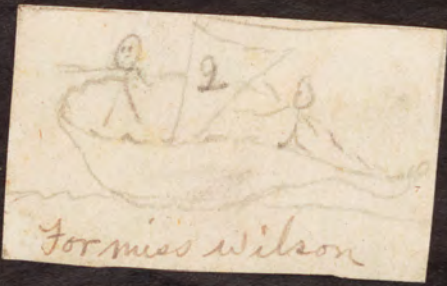 2
For miss wilson